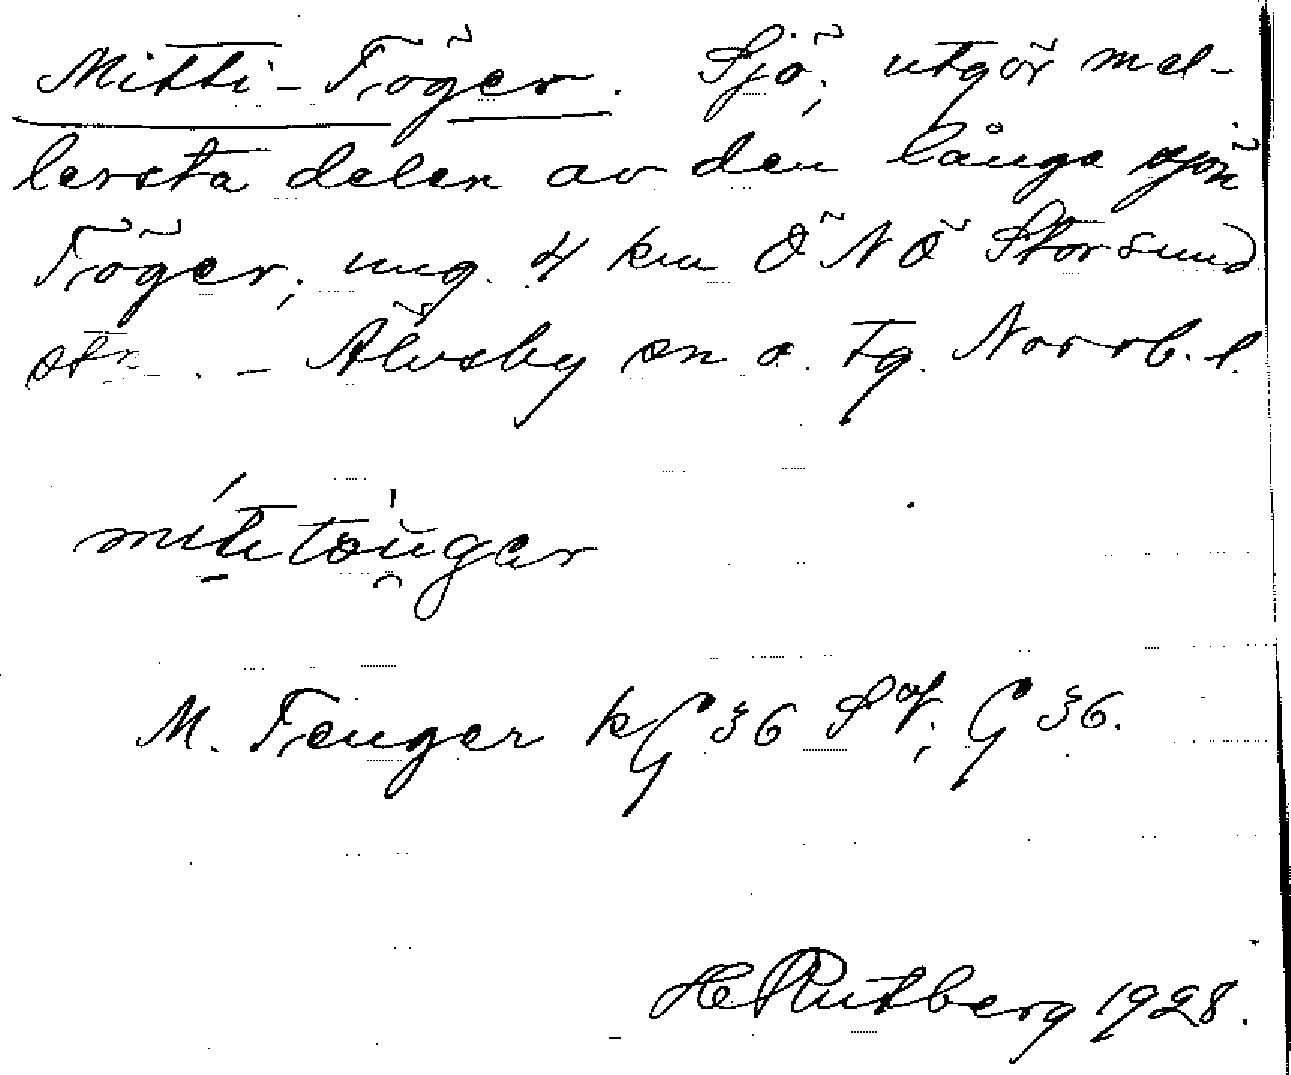 Mitti-Tröger. Sjö; utgör mel-
lersta delen av den långa sjön
Tröger, ung. 4 km ÖNÖ Storsund
stn. - Älvsby sn o. tg. Norrb. l.
M. Treuger kG 36 SV; G 36.
H Rutberg 1928.